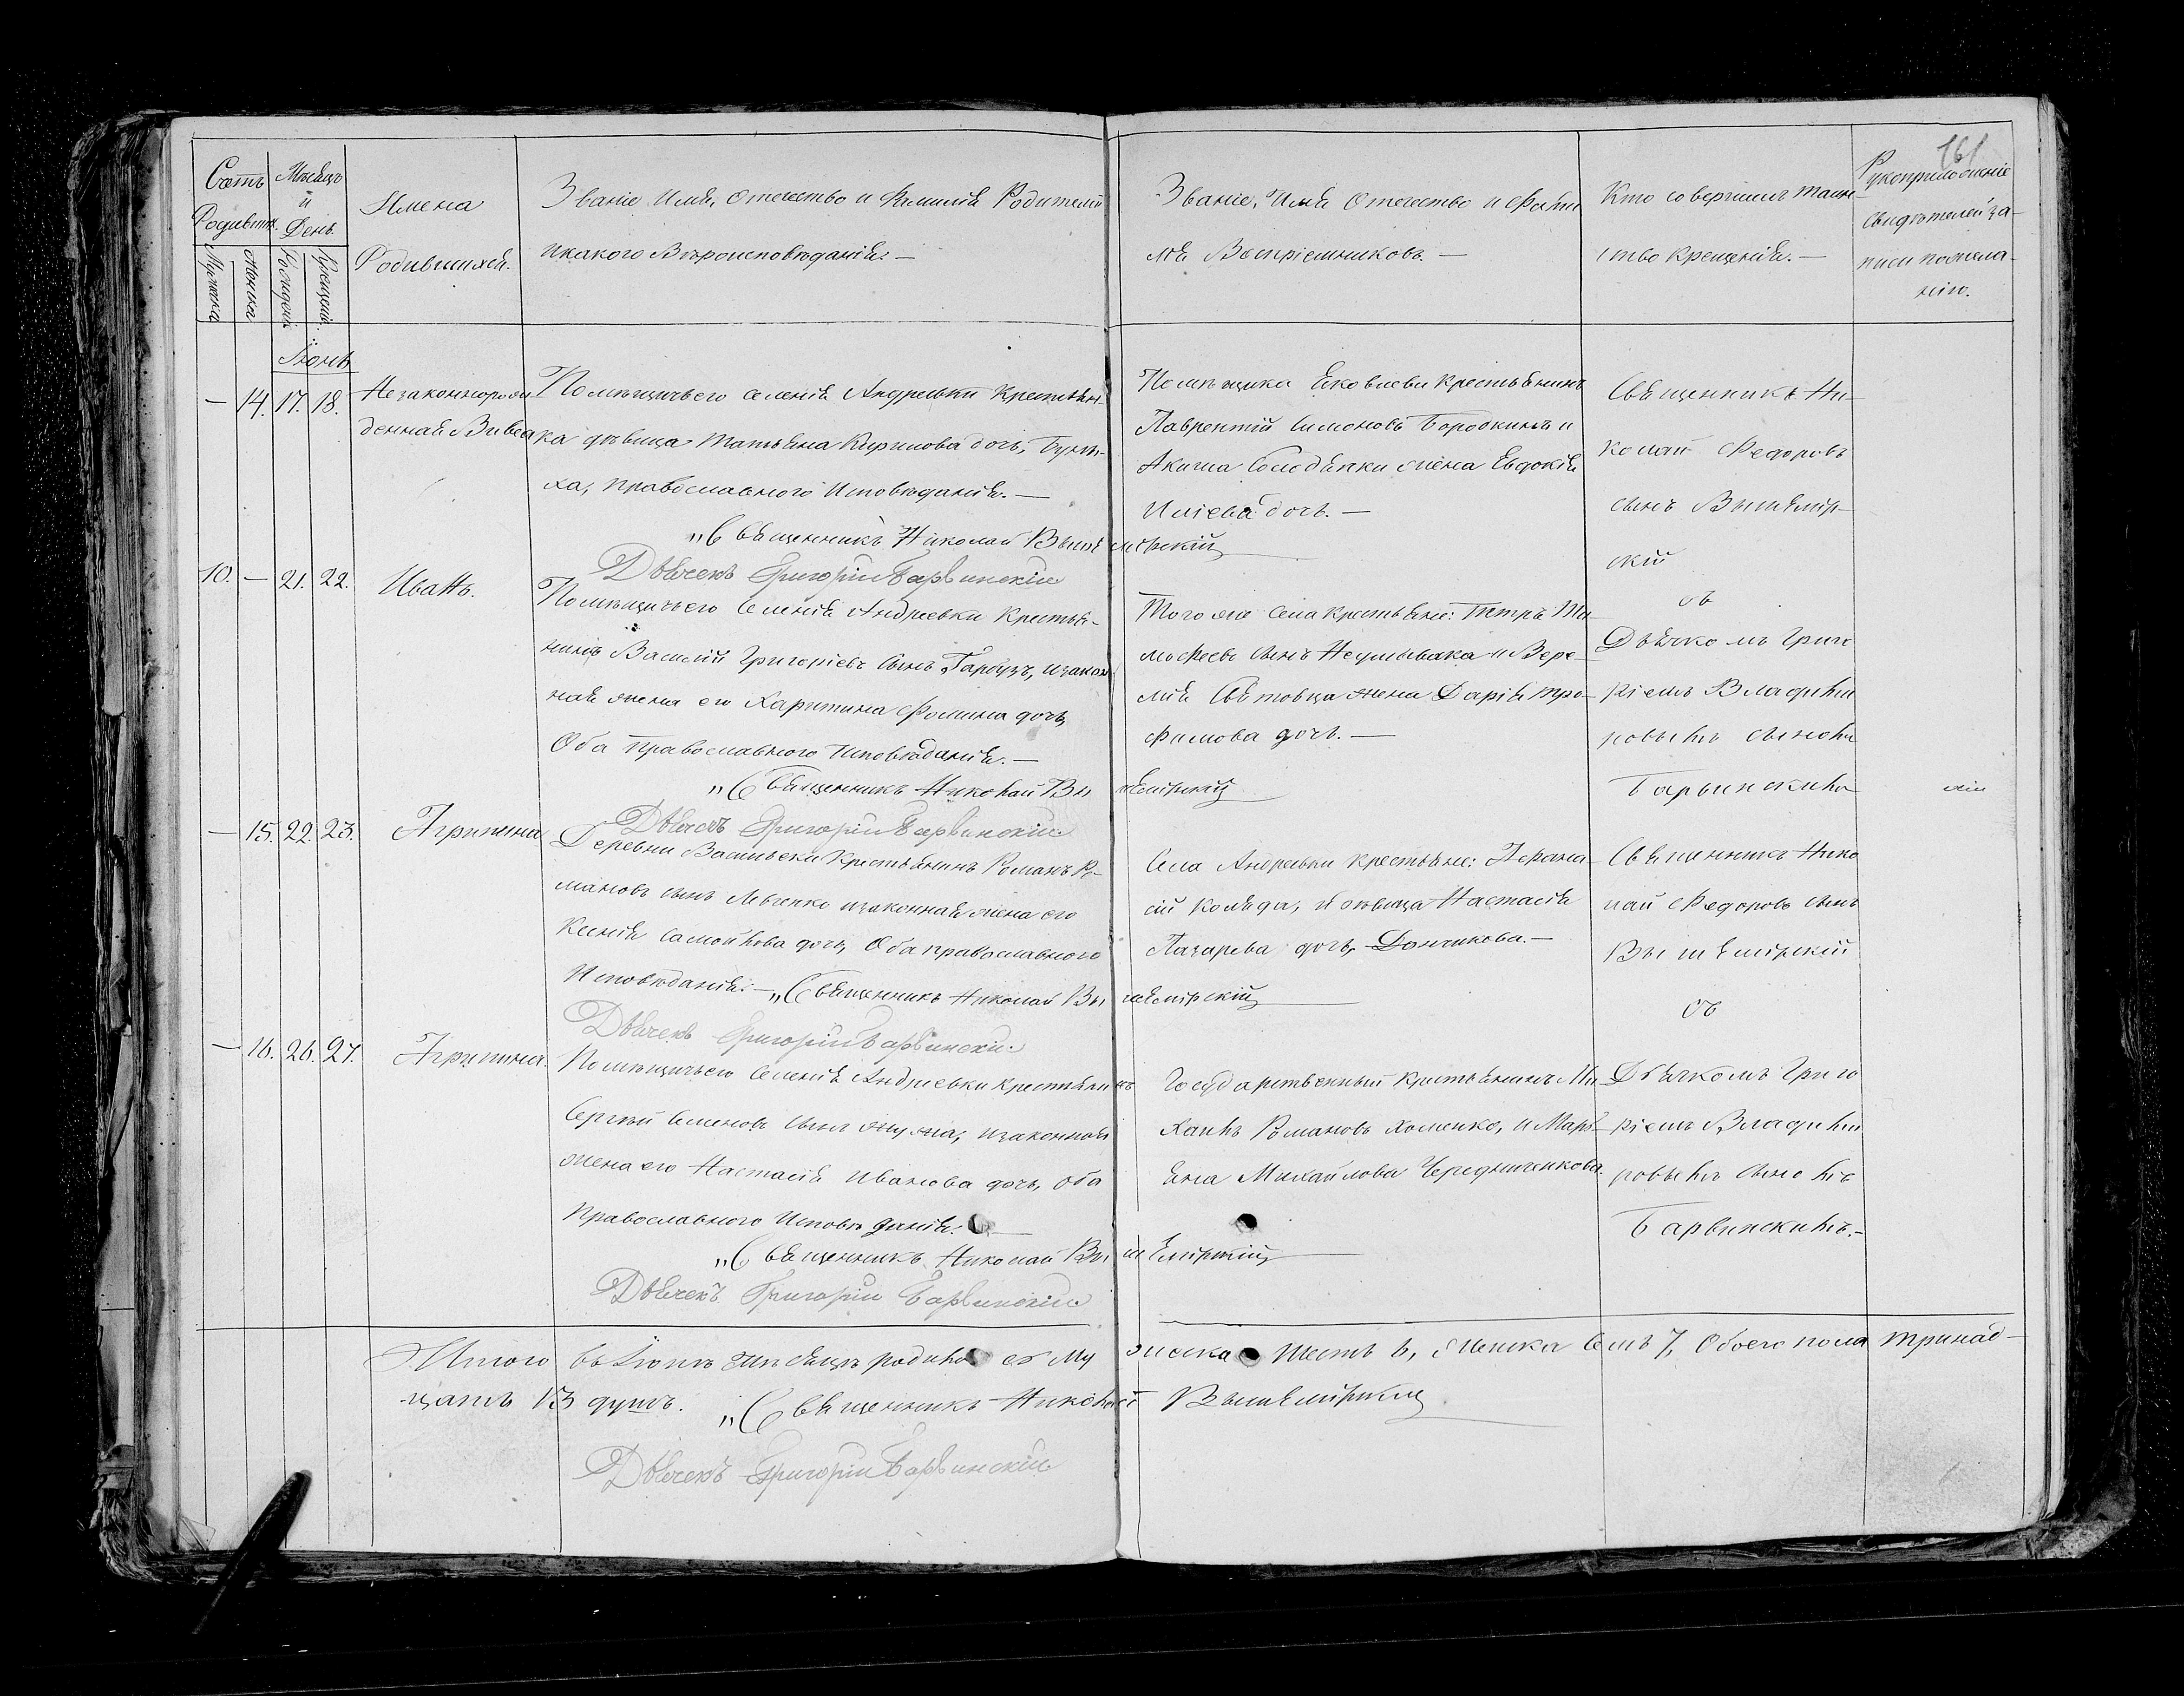 161
Счетъ Родившихся.
Мужеска
Женска
Мѣсяцъ и День.
Рожденія
Крещенія.
Имена
Родившихся.
Званіе, Имя, Отечество и Фамилія Родителей
и какого Вѣроисповѣданія: —
Званіе, Имя Отечество и Фами
лія Воспріемниковъ. —
Кто совершилъ таин-
ство крещенія. —
Рукоприложеніе
свидѣтелей за-
писи по жела-
нію.
Іюнь
— 14. 17. 18.
Незаконнорож
денная
Помѣщичьего селенія Андреевки крестьян-
ка дѣвица Татьяна Кирилова дочь,
ха, православного Исповѣданія. —
„Священникъ Николай Вышемірскій
Дьячекъ Григорій Барвинскій
Помѣщика Яковлева крестьянинъ
Лаврентій Симоновъ Бородкинъ и
Акима жена Евдокія
Иліева дочь. —
Священникъ Ни-
колай Федоровъ
сынъ Вышемір-
скій
съ
Дьячкомъ Григо
ріемъ Владими
ровымъ сыномъ
Барвинскимъ
10. — 21. 22.
Иванъ.
Помѣщичьего Селенія Андреевки Крестья-
нинъ Василій Григоріевъ сынъ Гарбузъ, и закон
ная жена его Харитина Фомина дочь,
Оба православного исповѣданія. —
„Священникъ Николай Вышемірскій
Дьячекъ Григорій Барвинскій
Того же села крестьяне: Петръ Ти
мофеевъ сынъ Неумывака и Вере-
мія жена Дарія Тро-
фимова дочь. —
— 15. 22. 23.
Агрипина
Деревни Васильевки Крестьянинъ Романъ Ро-
мановъ сынъ Левченко и законная жена его
Ксенія Самойлова дочь, Оба православного
Исповѣданія: — „Священникъ Николай Вышемірскій
Дьячекъ Григорій Барвинскій
Села Андреевки крестьяне: Афана-
сій Коляда, и дѣвица Настасія
Лазарева дочь, Дончикова. —
Священникъ Нико
лай Федоровъ сынъ
Вышемірскій
съ
— 16. 26. 27.
Агрипина.
Помѣщичьего Селенія Андреевки крестьянинъ
Сергій Семеновъ сынъ и законная
жена его Настасія Иванова дочь, оба
Православного Исповѣданія. —
„Священникъ Николай Вышемірскій
Дьячекъ Григорій Барвинскій
Государственный крестьянинъ Ми
хаилъ Романовъ Хоменко, и Марь-
яна Михайлова Чередниченкова.
Дьячкомъ Григо
ріемъ Владими
ровымъ сыномъ
Барвинскимъ. —
Итого въ Іюнѣ мѣсяцѣ родилось Мужеска Шесть 6, Женска Семь 7, Обоего пола тринад-
цать 13 душъ. „Священникъ Николай Вышемірскій
Дьячекъ Григорій Барвинскій